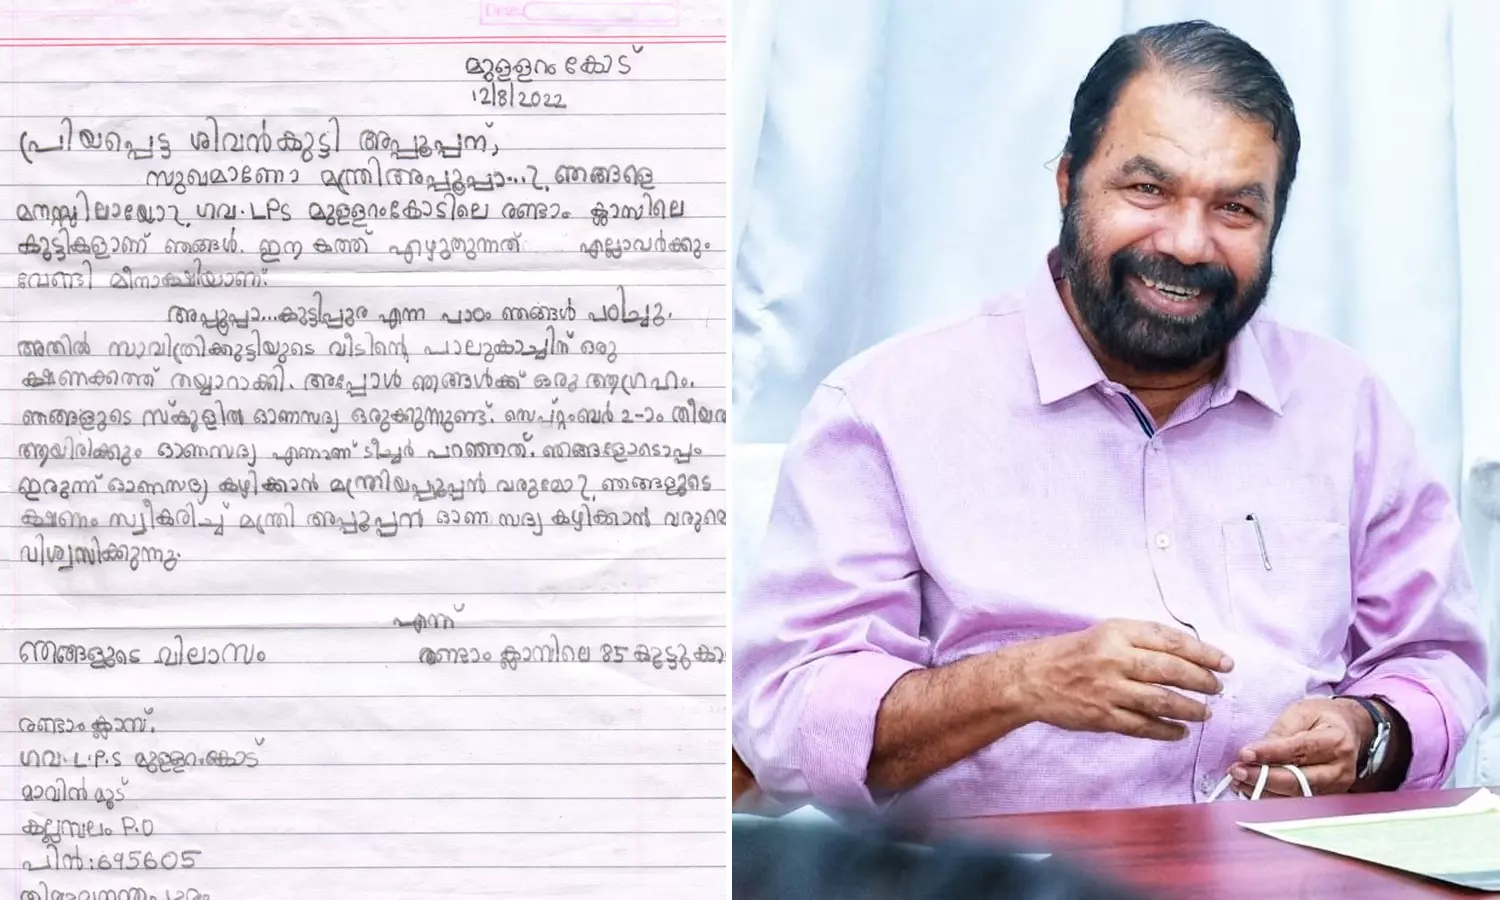 മുള്ളറംകോട്
12/8/2022
പ്രിയപ്പെട്ട ശിവൻകുട്ടി അപ്പൂപ്പന്,
സുഖമാണോ മന്ത്രിഅപ്പൂപ്പാ...?. ഞങ്ങളെ
മനസ്സിലായോ?. ഗവ.LPS മുള്ളറംകോടിലെ രണ്ടാം ക്ലാസിലെ
കുട്ടികളാണ് ഞങ്ങൾ. ഈ കത്ത് എഴുതുന്നത് എല്ലാവർക്കും
വേണ്ടി മീനാക്ഷിയാണ്.
അപ്പൂപ്പാ...കുട്ടിപ്പുര എന്ന പാഠം ഞങ്ങൾ പഠിച്ചു.
അതിൽ സാവിത്രിക്കുട്ടിയുടെ വീടിന്റെ പാലുകാച്ചിന് ഒരു
ക്ഷണക്കത്ത് തയ്യാറാക്കി. അപ്പോൾ ഞങ്ങൾക്ക് ഒരു ആഗ്രഹം.
ഞങ്ങളുടെ സ്കൂളിൽ ഓണസദ്യ ഒരുക്കുന്നുണ്ട്. സെപ്റ്റംബർ 2-ാം
ആയിരിക്കും ഓണസദ്യ എന്നാണ് ടീച്ചർ പറഞ്ഞത്. ഞങ്ങളോടൊപ്പം
ഇരുന്ന് ഓണസദ്യ കഴിക്കാൻ മന്ത്രിയപ്പൂപ്പൻ വരുമോ?. ഞങ്ങളുടെ
ക്ഷണം സ്വീകരിച്ച് മന്ത്രി അപ്പൂപ്പൻ ഓണ സദ്യ കഴിക്കാൻ
വിശ്വസിക്കുന്നു.
എന്ന്
ഞങ്ങളുടെ വിലാസം രണ്ടാം ക്ലാസിലെ 85
രണ്ടാം ക്ലാസ്.
ഗവ.L.P.S മുള്ളറംകോട്
മാവിൻമൂട്
കല്ലമ്പലം P.O
പിൻ:695605